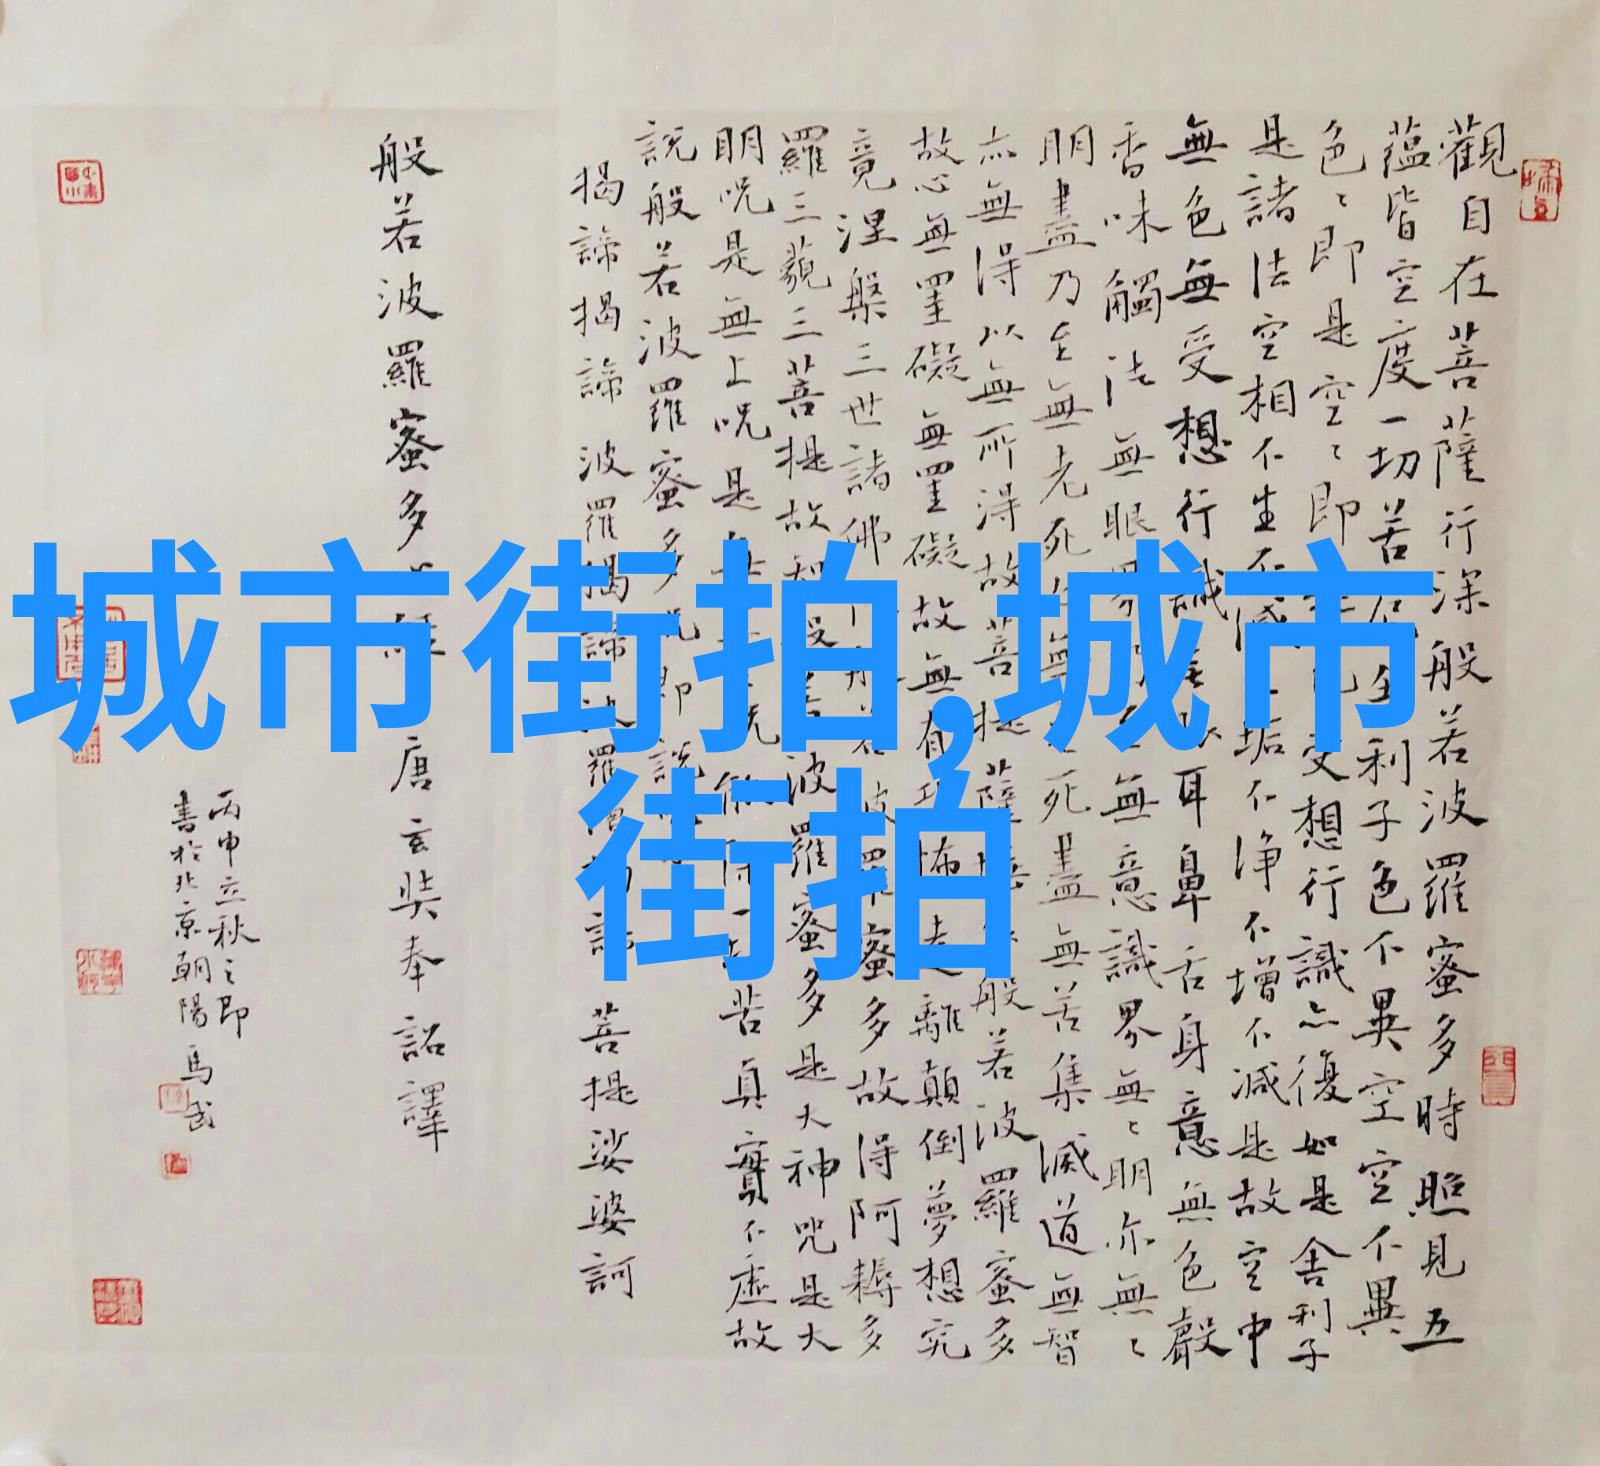 城市街拍,城市
街拍
觀自在菩薩行深般若波羅蜜多時照見五
蘊皆空度一切苦利子色不異空空不異
色〻即是空〻即受想行識亦復如是舍利子
是諸法空相不生不滅垢不淨不增不減是故空中
無色無受想行識耳鼻舌身意無色聲
香味觸法無眼界無意識界無〻明亦無〻
明盡乃至無老死死盡無苦集滅道無智
亦無得以無所得故菩提薩般若波羅蜜多
故心無罣礙無罣礙故無有怖遠離顛倒夢想究
竟涅槃三世諸佛般若波羅蜜多故得阿耨多
羅三藐三菩提故知般若波羅蜜多是大神咒是大
明呪是無上呪是能除一苦真實不虛故
說般若波羅蜜多呪即說
揭諦揭諦 波羅揭諦 波羅僧揭諦 菩提娑婆訶
般若波羅蜜多經 唐玄奘奉詔譯
丙申立秋之即
書於北京朝陽 馬武